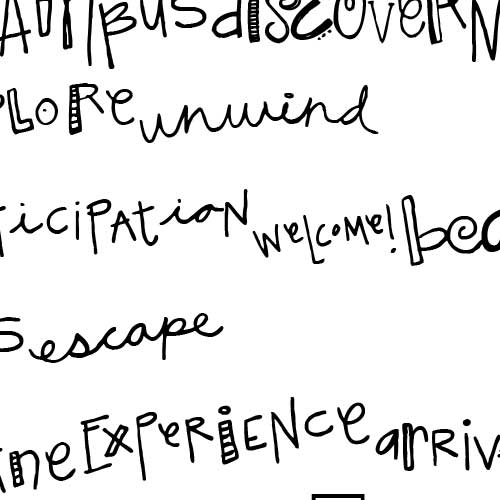 AmpusdiscOveRN
PLOReunwind
TiciPAtioNweLcoMe!bea
Sescape
ineEXPeRiENceaRRiv